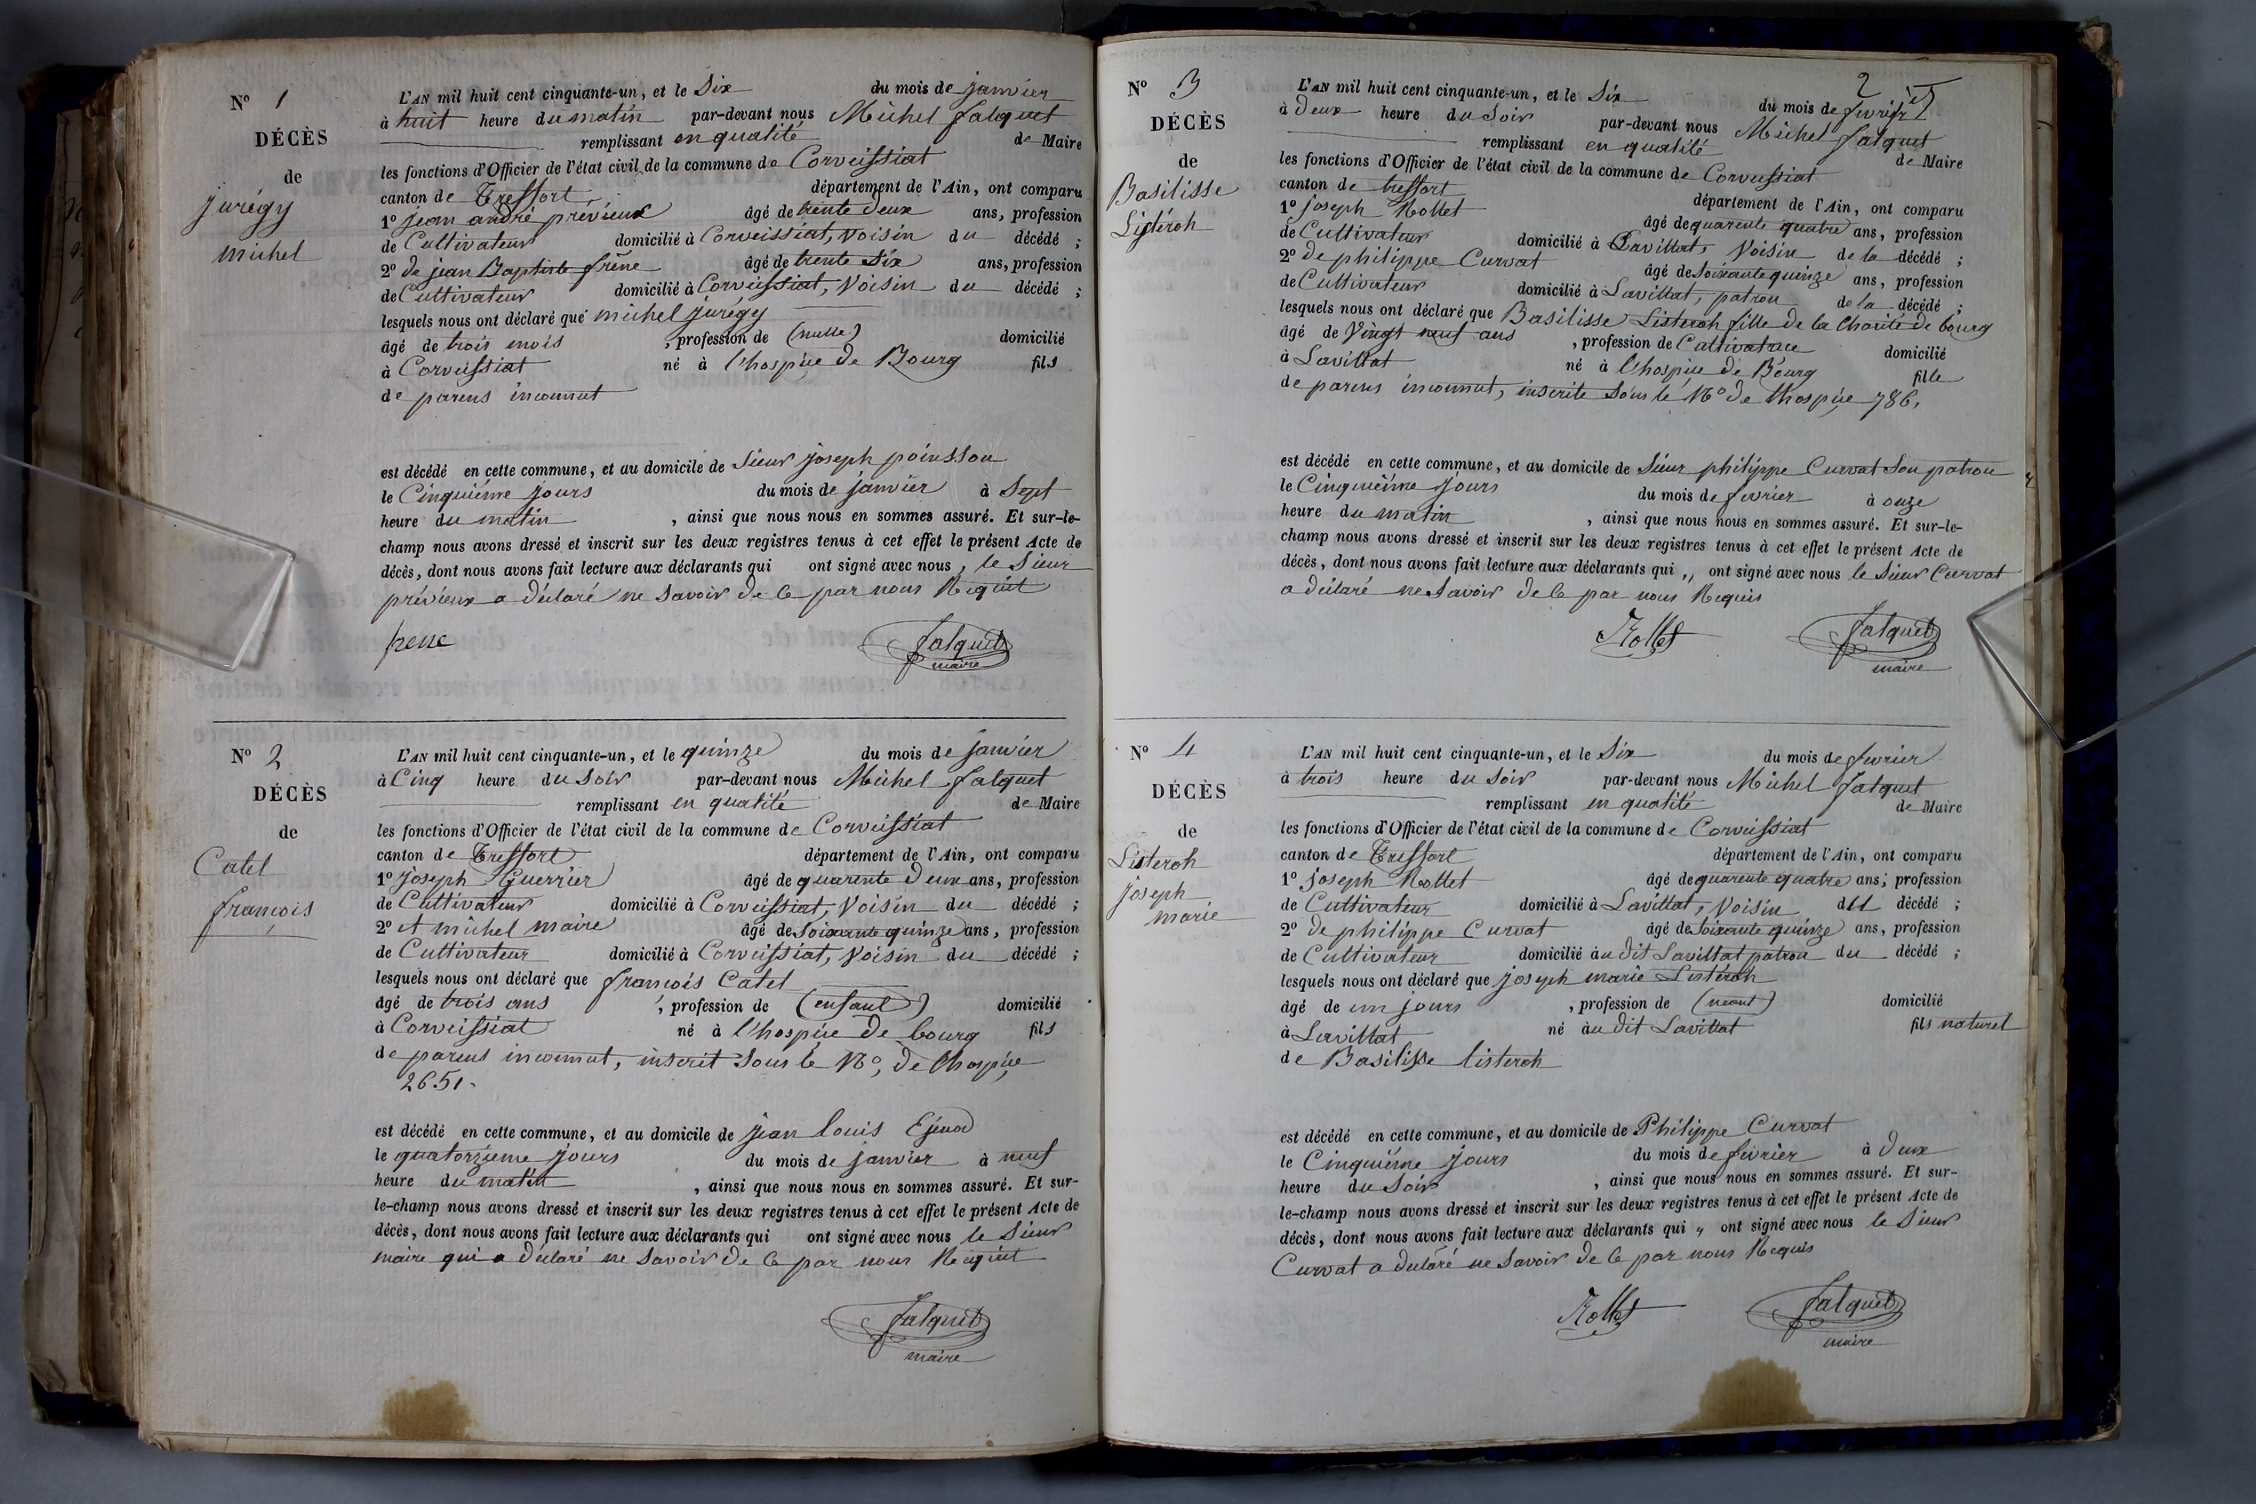 N° 1
DÉCÈS
de
jurégy
michel
L'AN mil huit cent cinquante-un, et le Six du mois de janvier
à huit heure du matin par-devant nous Michel falquet
remplissant en qualité de Maire
les fonctions d'Officier de l'état civil de la commune de Corveissiat
canton de Treffort, département de l'Ain, ont comparu
1° jean andré prévieux âgé de trente deux ans, profession
de Cultivateur domicilié à Corveissiat, Voisin du décédé ;
2° de jean Baptiste frêne âgé de trente Six ans, profession
de Cultivateur domicilié à Corveissiat, Voisin du décédé ;
lesquels nous ont déclaré que michel jurégy
âgé de trois mois , profession de (nulle) domicilié
à Corveissiat né à l'hospice de Bourg fils
de parens inconnut
est décédé en cette commune, et au domicile de Sieur joseph poinsson
le Cinquiéme jours du mois de janvier à Sept
heure du matin , ainsi que nous nous en sommes assuré. Et sur-le-
champ nous avons dressé et inscrit sur les deux registres tenus à cet effet le présent Acte de
décès, dont nous avons fait lecture aux déclarants qui ont signé avec nous, le Sieur
prévieux a déclaré ne Savoir de ce par nous Requit
frene falquet
maire
N° 2
DÉCÈS
de
Catel
françois
L'AN mil huit cent cinquante-un, et le quinze du mois de janvier
à Cinq heure du Soir par-devant nous Michel falquet
remplissant en qualité de Maire
les fonctions d'Officier de l'état civil de la commune de Corveissiat
canton de Treffort département de l'Ain, ont comparu
1° joseph Guerrier âgé de quarente deux ans, profession
de Cultivateur domicilié à Corveissiat, Voisin du décédé ;
2° et michel maire âgé de Soixante quinze ans, profession
de Cultivateur domicilié à Corveissiat, Voisin du décédé ;
lesquels nous ont déclaré que françois Catel
âgé de trois ans , profession de (enfant) domicilié
à Corveissiat né à l'hospice de bourg fils
de parens inconnut, inscrit Sous le N°, de lhospice
2651.
est décédé en cette commune, et au domicile de jean louis
le quatorzieme jours du mois de janvier à neuf
heure du matin , ainsi que nous nous en sommes assuré. Et sur-
le-champ nous avons dressé et inscrit sur les deux registres tenus à cet effet le présent Acte de
décès, dont nous avons fait lecture aux déclarants qui ont signé avec nous le Sieur
maire qui a déclaré ne Savoir de ce par nous Requit
falquet
maire
2
N° 3
DÉCÈS
de
Basilisse
Listéroh
L'AN mil huit cent cinquante-un, et le Six du mois de fevrier
à deux heure du Soir par-devant nous Michel falquet
remplissant en qualité de Maire
les fonctions d'Officier de l'état civil de la commune de Corveissiat
canton de treffort département de l'Ain, ont comparu
1° joseph Rollet âgé de quarente quatre ans, profession
de Cultivateur domicilié à Lavillat, Voisin de la décédé ;
2° de philippe Curvat âgé de Soixante quinze ans, profession
de Cultivateur domicilié à Lavillat, patron de la décédé ;
lesquels nous ont déclaré que Basilisse Listeroh fille de la Charité de bourg
âgé de Vingt neuf ans , profession de Cultivatrice domicilié
à Lavillat né à l'hospice de Bourg fille
de parens inconnut, inscrite Sous le N° de lhospice 786,
est décédé en cette commune, et au domicile de Sieur philippe Curvat Son patron
le Cinquiéme jours du mois de fevrier à onze
heure du matin , ainsi que nous nous en sommes assuré. Et sur-le-
champ nous avons dressé et inscrit sur les deux registres tenus à cet effet le présent Acte de
décès, dont nous avons fait lecture aux déclarants qui ,, ont signé avec nous le Sieur Curvat
a déclaré ne Savoir de ce par nous Requis
Rollet falquet
maire
N° 4
DÉCÈS
de
Listeroh
joseph
marie
L'AN mil huit cent cinquante-un, et le Six du mois de fevrier
à trois heure du Soir par-devant nous Michel falquet
remplissant en qualité de Maire
les fonctions d'Officier de l'état civil de la commune de Corveissiat
canton de Treffort département de l'Ain, ont comparu
1° joseph Rollet âgé de quarente quatre ans, profession
de Cultivateur domicilié à Lavillat, Voisin du décédé ;
2° de philippe Curvat âgé de Soixante quinze ans, profession
de Cultivateur domicilié au dit Lavillat patron du décédé ;
lesquels nous ont déclaré que joseph marie Listéroh
âgé de un jours , profession de (neant) domicilié
à Lavillat né au dit Lavillat fils naturel
de Basilisse listeroh
est décédé en cette commune, et au domicile de Philippe Curvat
le Cinquiéme jours du mois de fevrier à deux
heure du Soir , ainsi que nous nous en sommes assuré. Et sur-
le-champ nous avons dressé et inscrit sur les deux registres tenus à cet effet le présent Acte de
décès, dont nous avons fait lecture aux déclarants qui ,, ont signé avec nous le Sieur
Curvat a déclaré ne Savoir de ce par nous Requis
Rollet falquet
maire